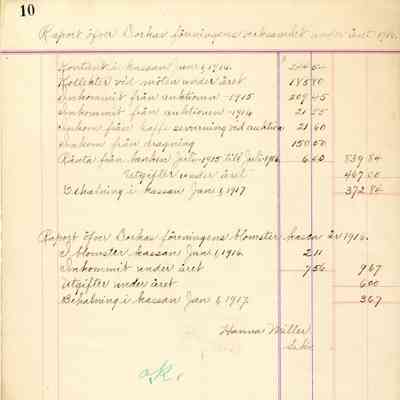 10
Raport öfver Dorkas föreningens verksamhet under året 1916.
Kontant i kassan Jan 1, 1916.
Kollekter vid möten under året 185 80
Inkommit från auktionen - 1915 209 45
Inkommit från auktionen - 1916 21 55
Inkom från kaffe servering vid auktion 21 60
Inkom från dragning 150 00
Ränta från banken Juli-1915 till Juli-1916 6 60 839 84
Utgifter under året 467 00
Behalning i kassan Jan 1, 1917 372 84
Raport öfver Dorkas föreningens blomster kassa år 1916.
I blomster kassan Jan 1, 1916. 2 11
Inkommit under året 7 56 9 67
Utgifter under året 6 00
Behalning i kassan Jan 1, 1917. 3 67
Hanna Miller
Sekr
O.K.